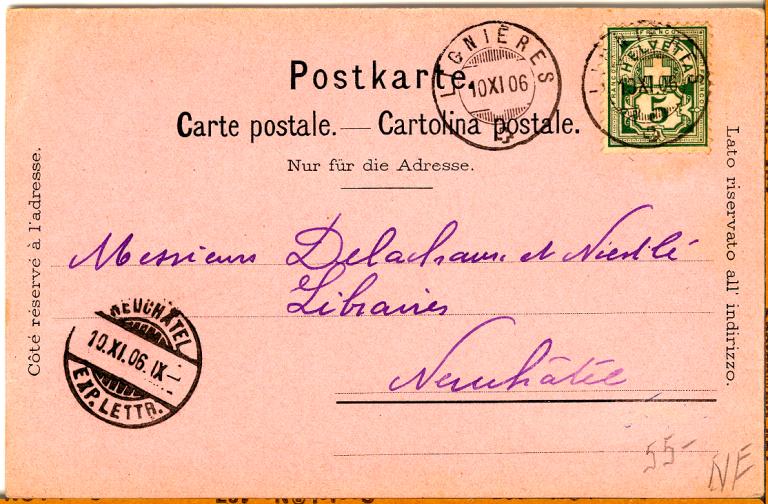 Postkarte.
Carte postale. — Cartolina postale.
Nur für die Adresse.
LIGNIÈRES
10 XI 06
FRANCO
HELVETIA
XI 06
5
Côté réservé à l'adresse.
Lato riservato all' indirizzo.
Messieurs Delachaux et Niestlé
Libraires
Neuchâtel
NEUCHÂTEL
10.XI.06.IX-
EXP. LETTR.
55-
NE